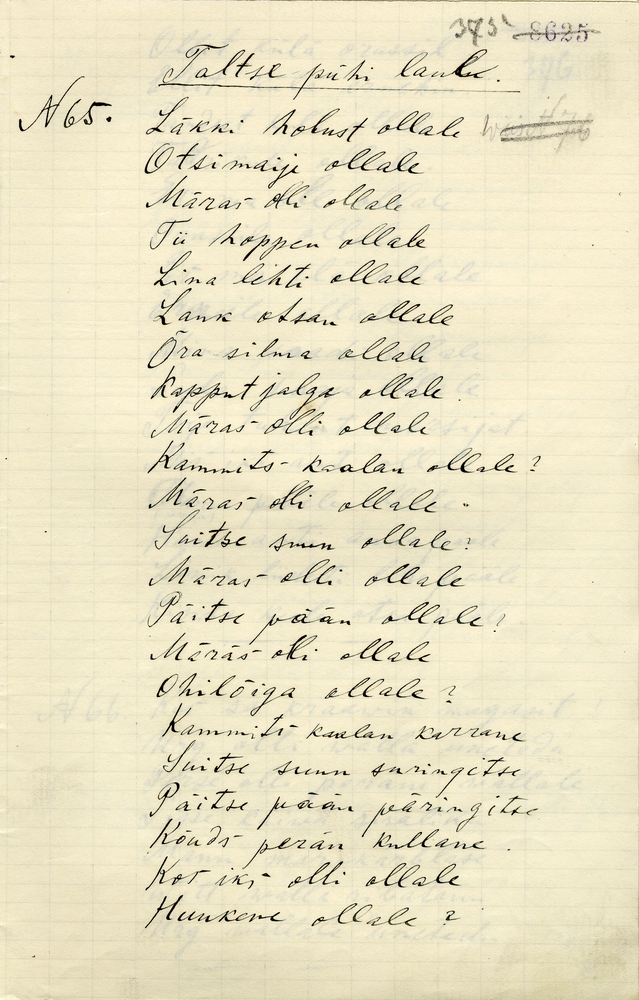 375 8625
Taltse pühi laulu.
N 65.
Läkki hobust ollale
Otsimaije ollale
Märas olli ollale
Tü hoppen ollale
Lina lehti ollale
Lauk otsan ollale
Õra silma ollale
Kapput jalga ollale.
Märas olli ollale
Kammits kaalan ollale?
Märas olli ollale
Suitse suun ollale?
Märas olli ollale
Päitse pään ollale?
Märäs olli ollale
Ohilõiga ollale?
Kammits kaalan karrane
Suitse suun suringitse
Päitse pään päringitse
Kõuds perän kullane.
Kos iks olli ollale
Huukene ollale?